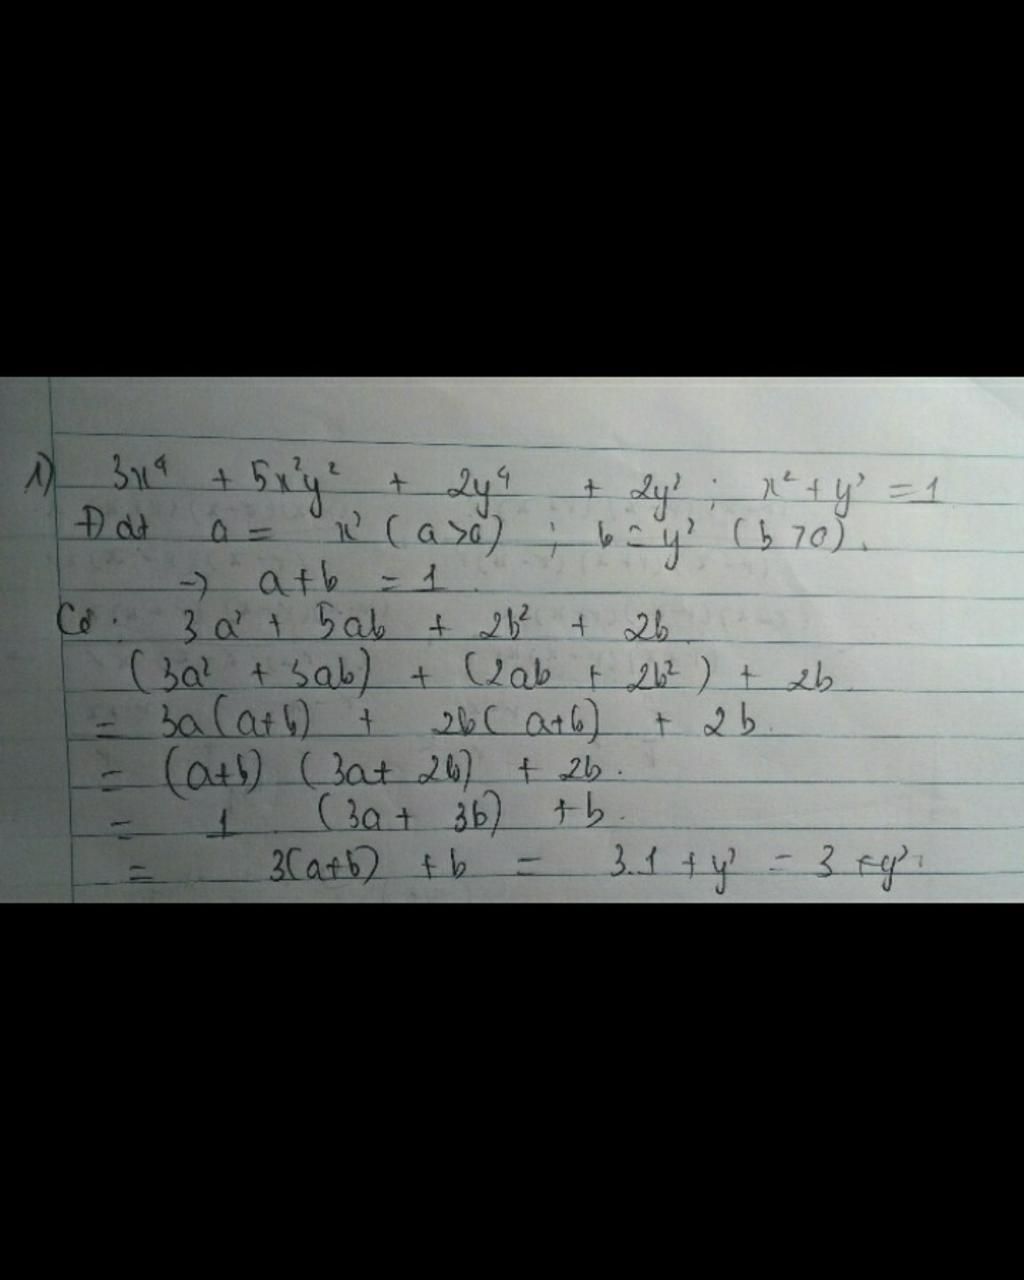 1) 3x⁴ + 5x²y² + 2y⁴ + 2y² ; x² + y² = 1
Đặt a = x² (a>0) ; b = y² (b>0).
→ a+b = 1
Có : 3a² + 5ab + 2b² + 2b.
(3a² + 3ab) + (2ab + 2b²) + 2b.
= 3a(a+b) + 2b(a+b) + 2b.
= (a+b) (3a+ 2b) + 2b.
= 1 (3a + 3b) + b.
= 3(a+b) + b = 3.1 + y² = 3 + y².